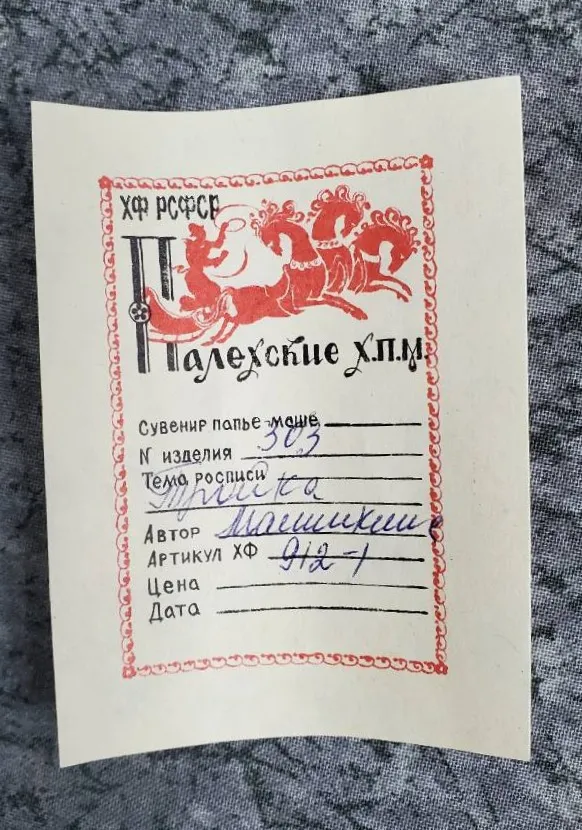 ХФ РСФСР
Палехские Х.П.М.
Сувенир папье-маше
N изделия 303
Тема росписи
Тройка
Автор
Артикул ХФ 912-1
Цена
Дата